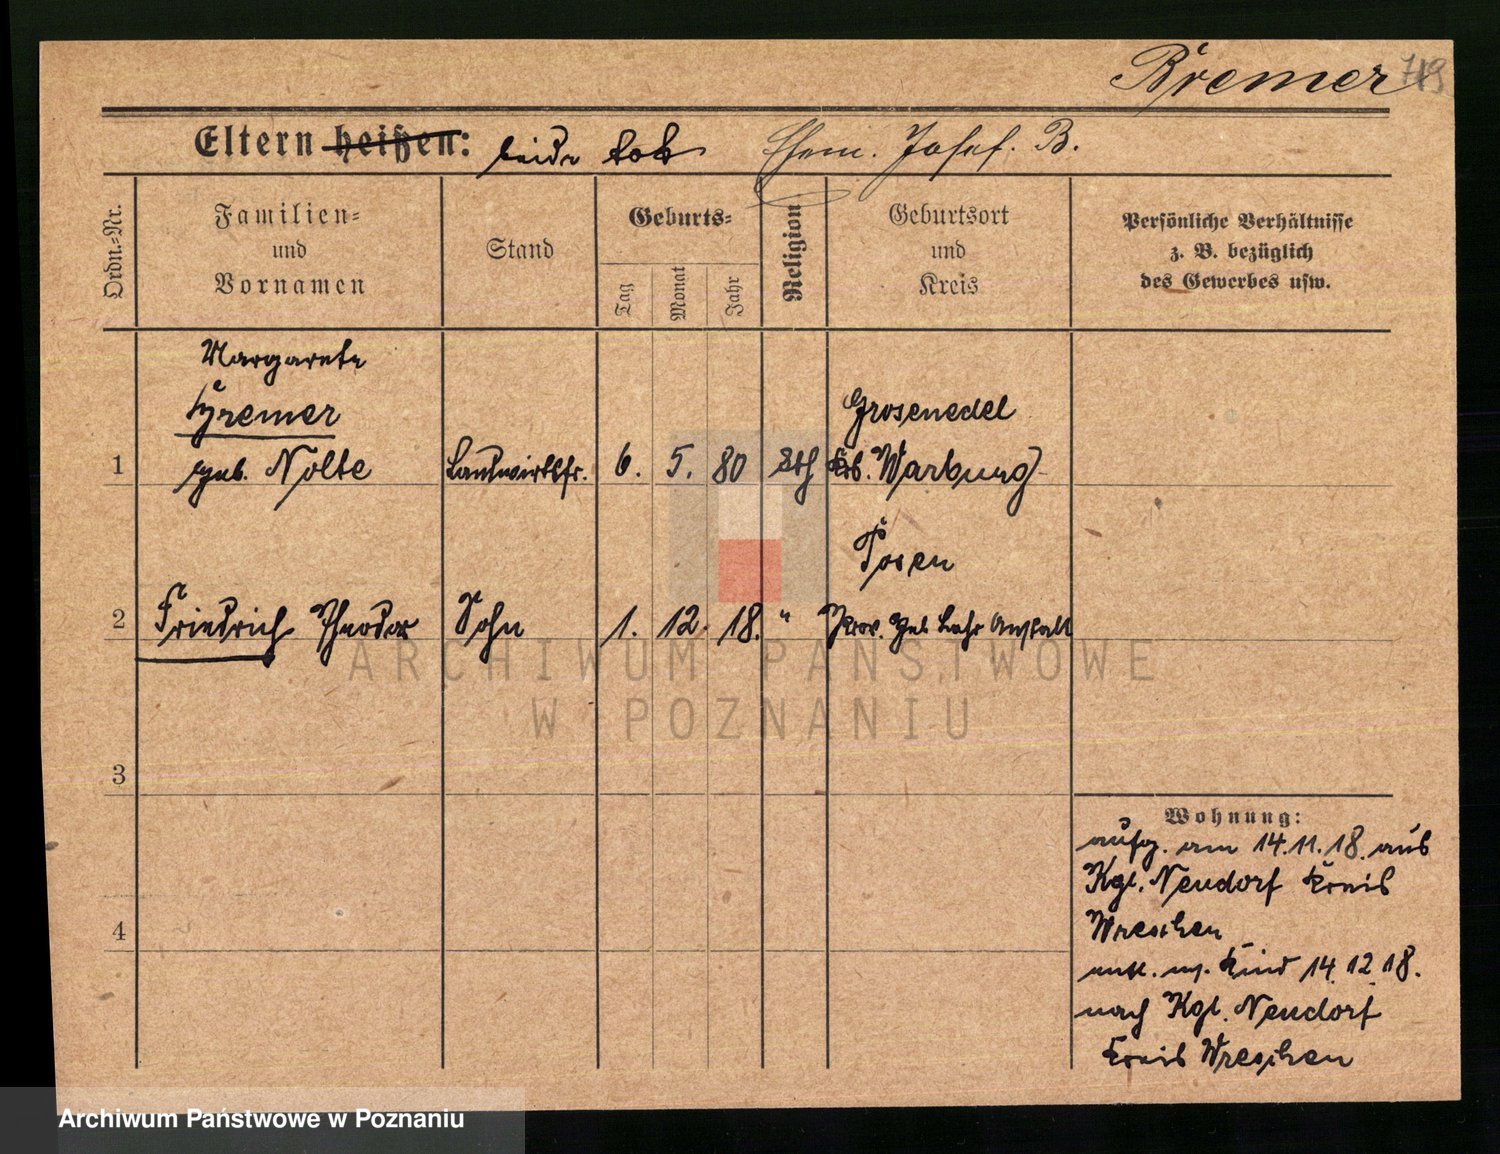 Bremer 719
Eltern heißen: beide tot Ehem. Josef. B.
Ordn.-Nr.
Familien-
und
Vornamen
Stand
Geburts-
Tag
Monat
Jahr
Religion
Geburtsort
und
Kreis
Persönliche Verhältnisse
z. B. bezüglich
des Gewerbes usw.
Margarete
Bremer
geb. Nolte
1 Landwirtsfr. 6. 5. 80 kth
Grosenedel
Krs. Warburg
Posen
2 Friedrich Theodor Sohn 1. 12. 18. " Prov. Heb Lehr Anstalt
ARCHIWUM PAŃSTWOWE
W POZNANIU
3
4
Wohnung:
aufg. am 14.11.18. aus
Kgl. Neudorf Kreis
Wreschen
entl. m. Kind 14 12 18.
nach Kgl. Neudorf
Kreis Wreschen
Archiwum Państwowe w Poznaniu